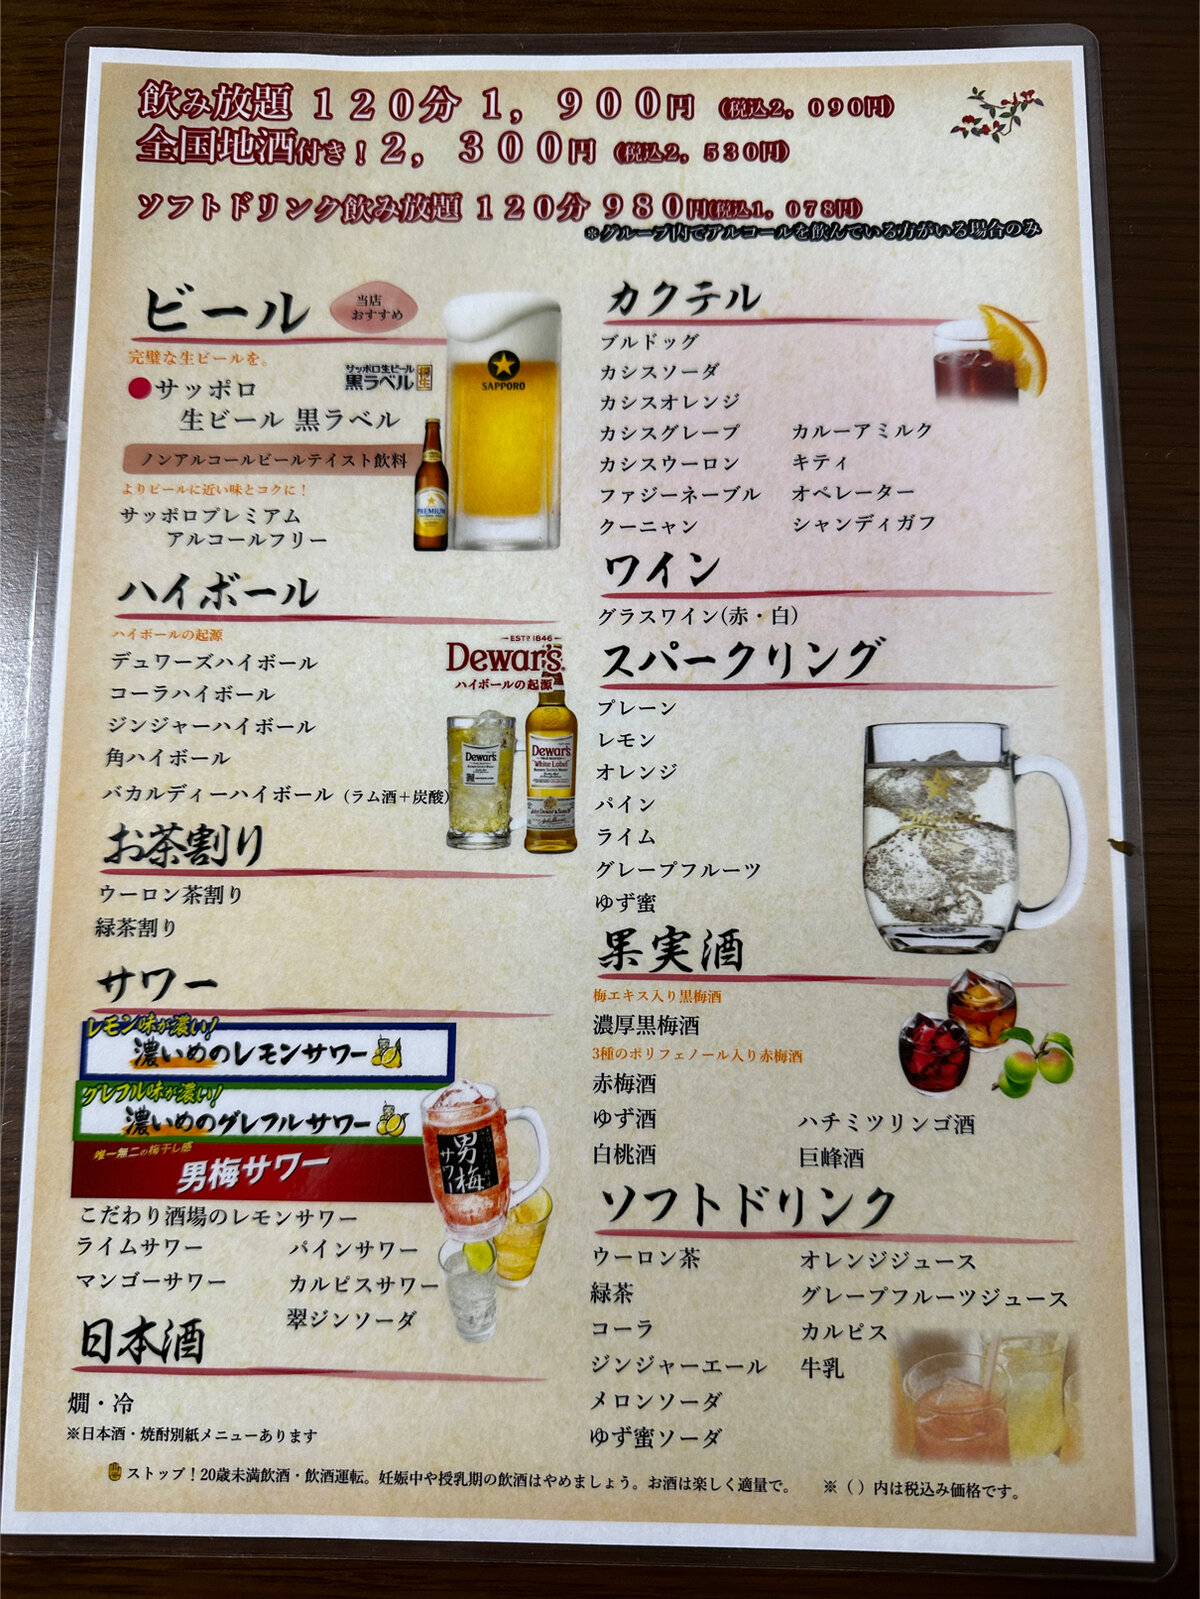 飲み放題 120分 1,900円 (税込2,090円)
全国地酒付き!2,300円 (税込2,530円)
ソフトドリンク飲み放題 120分 980円(税込1,078円)
※グループ内でアルコールを飲んでいる方がいる場合のみ
ビール
当店
おすすめ
完璧な生ビールを。
サッポロ生ビール
黒ラベル
●サッポロ
生ビール 黒ラベル
SAPPORO
ノンアルコールビールテイスト飲料
よりビールに近い味とコクに!
サッポロプレミアム
アルコールフリー
PREMIUM
ハイボール
ハイボールの起源
デュワーズハイボール
コーラハイボール
ジンジャーハイボール
角ハイボール
バカルディーハイボール (ラム酒+炭酸)
ESTD 1846
Dewar's
ハイボールの起源
Dewar's
Dewar's
White Label
お茶割り
ウーロン茶割り
緑茶割り
サワー
レモン味が濃い!
濃いめのレモンサワー
グレフル味が濃い!
濃いめのグレフルサワー
唯一無二の梅干し感
男梅サワー
男梅
サワー
こだわり酒場のレモンサワー
ライムサワー パインサワー
マンゴーサワー カルピスサワー
翠ジンソーダ
日本酒
燗・冷
※日本酒・焼酎別紙メニューあります
カクテル
ブルドッグ
カシスソーダ
カシスオレンジ
カシスグレープ カルーアミルク
カシスウーロン キティ
ファジーネーブル オペレーター
クーニャン シャンディガフ
ワイン
グラスワイン(赤・白)
スパークリング
プレーン
レモン
オレンジ
パイン
ライム
グレープフルーツ
ゆず蜜
果実酒
梅エキス入り黒梅酒
濃厚黒梅酒
3種のポリフェノール入り赤梅酒
赤梅酒
ゆず酒 ハチミツリンゴ酒
白桃酒 巨峰酒
ソフトドリンク
ウーロン茶 オレンジジュース
緑茶 グレープフルーツジュース
コーラ カルピス
ジンジャーエール 牛乳
メロンソーダ
ゆず蜜ソーダ
ストップ!20歳未満飲酒・飲酒運転。妊娠中や授乳期の飲酒はやめましょう。お酒は楽しく適量で。 ※()内は税込み価格です。